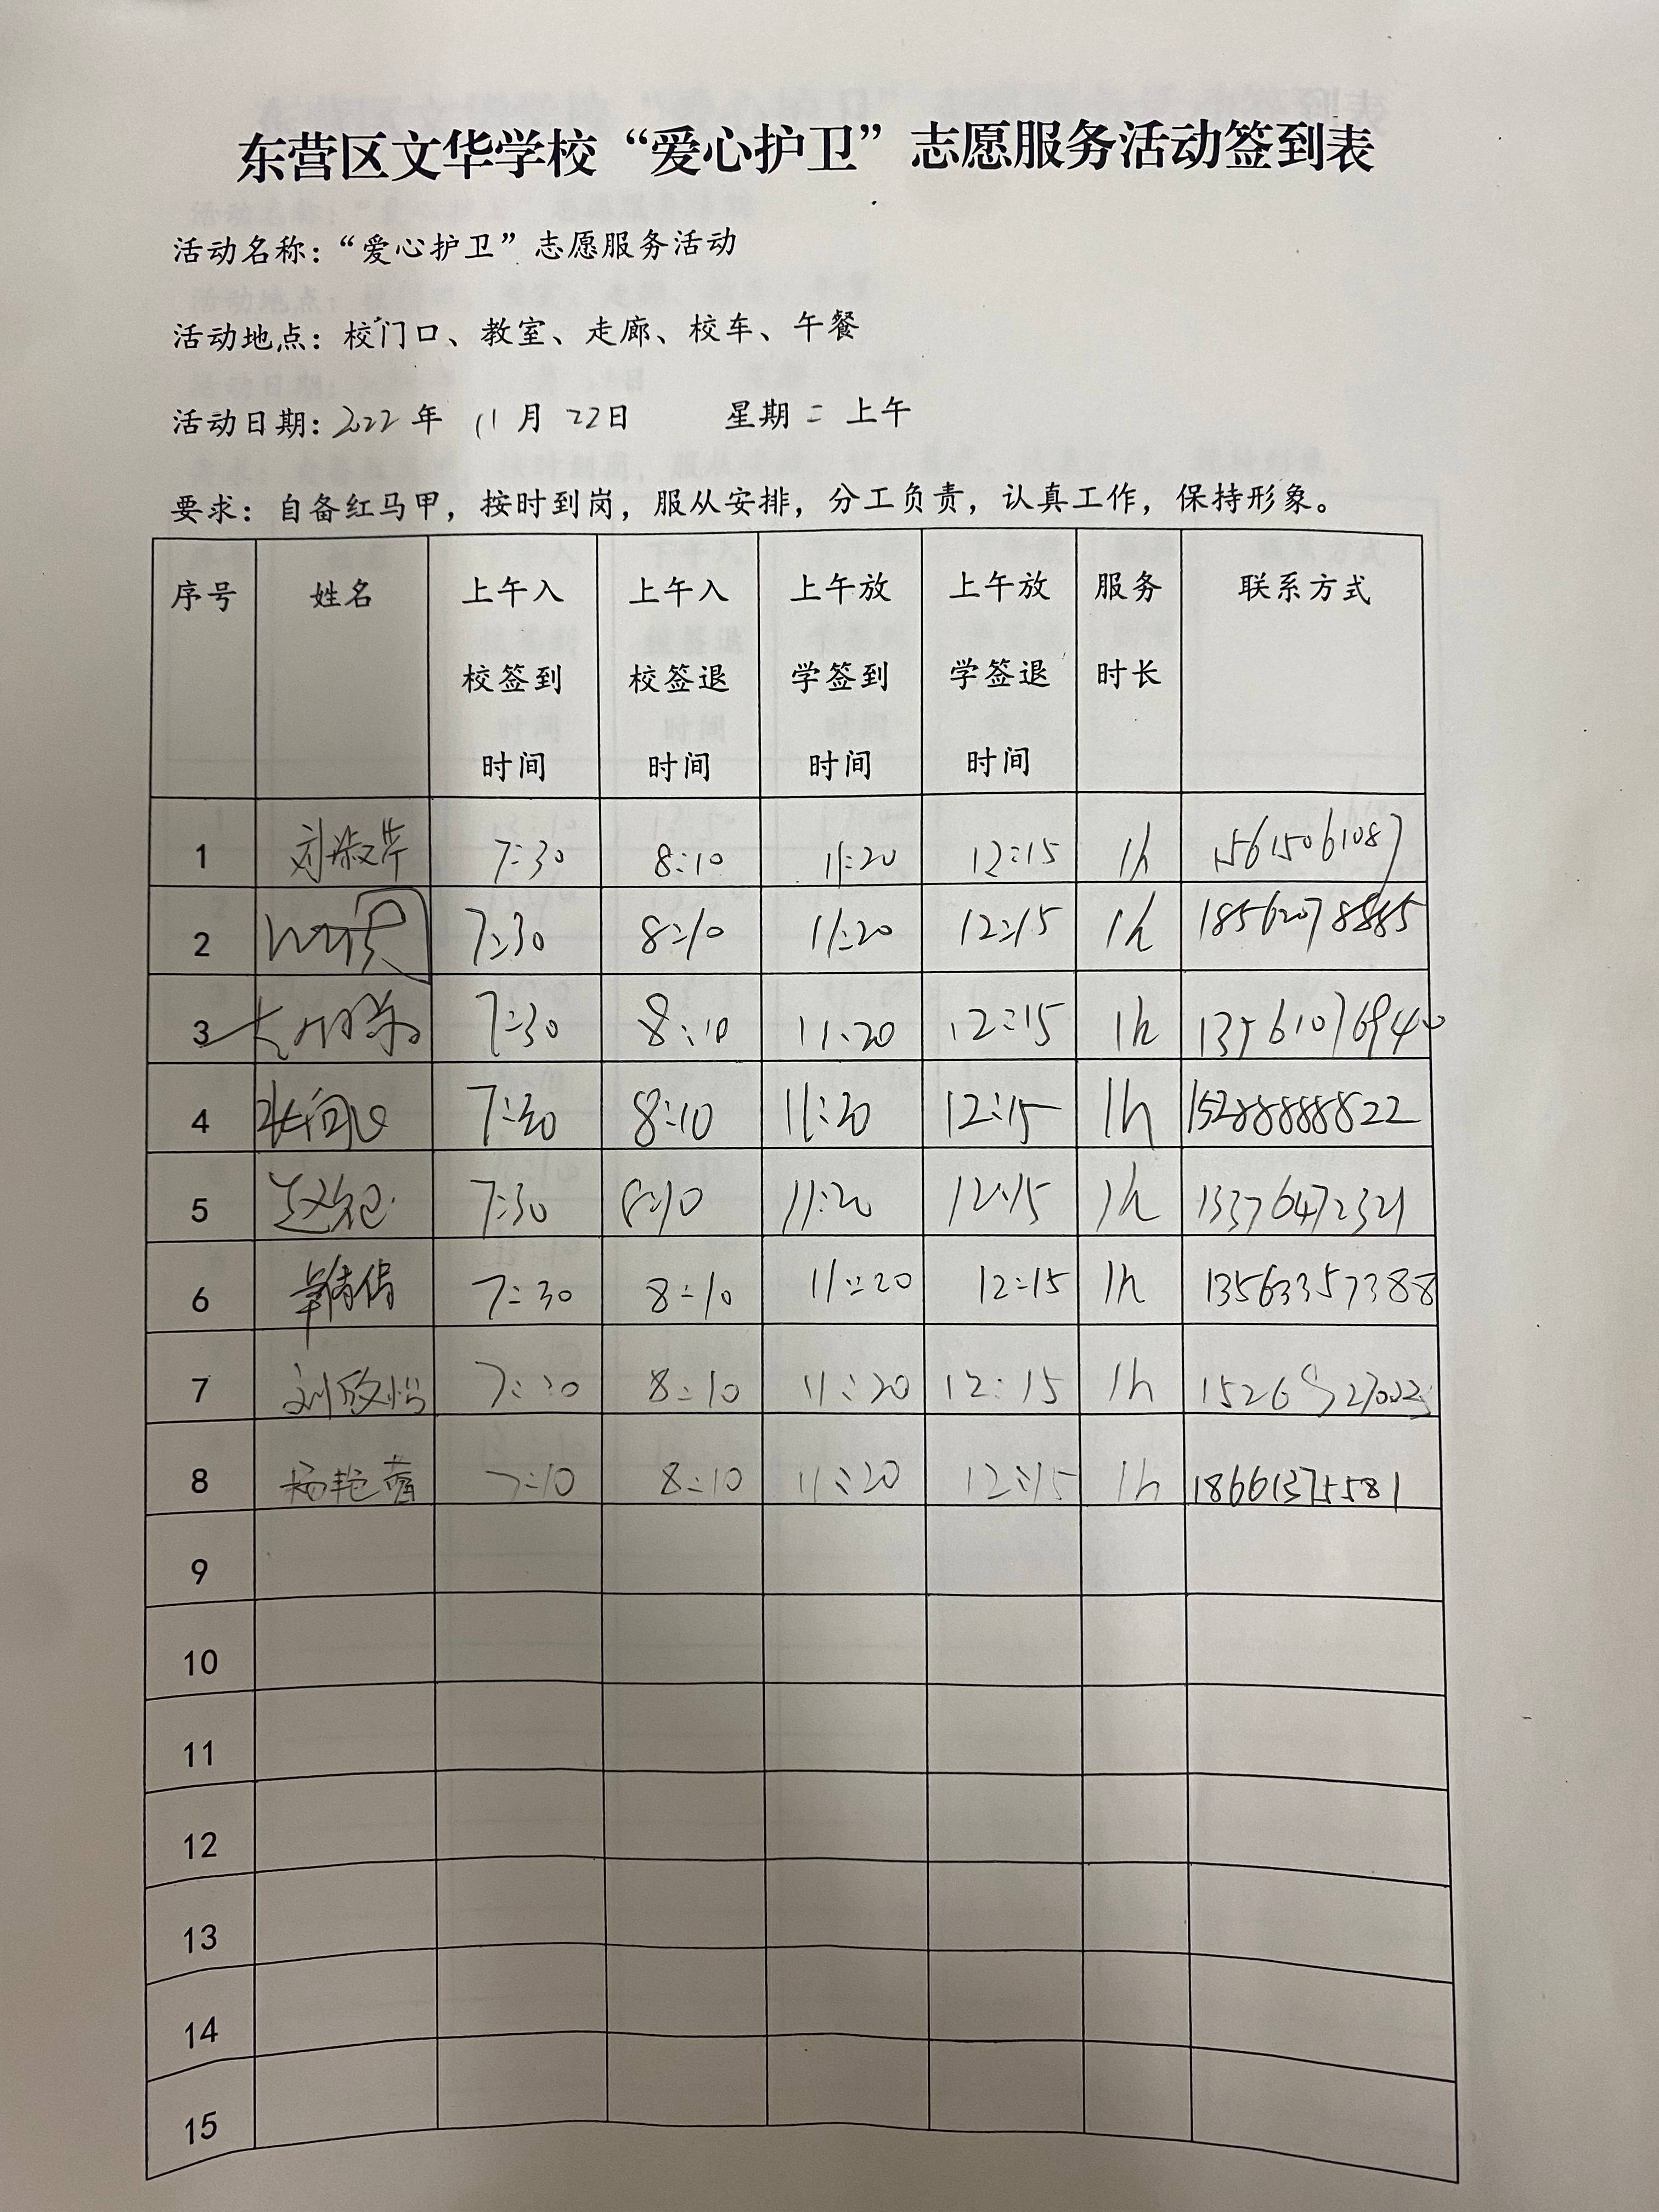 东营区文华学校“爱心护卫”志愿服务活动签到表
活动名称：“爱心护卫”志愿服务活动
活动地点：校门口、教室、走廊、校车、午餐
活动日期：2022年 11月 22日 星期二 上午
要求：自备红马甲，按时到岗，服从安排，分工负责，认真工作，保持形象。
序号 姓名 上午入校签到时间 上午入校签退时间 上午放学签到时间 上午放学签退时间 服务时长 联系方式
1 刘淑芹 7:30 8:10 11:20 12:15 1h 15615061087
2 7:30 8:10 11:20 12:15 1h 18562078885
3 7:30 8:10 11:20 12:15 1h
4 7:30 8:10 11:20 12:15 1h 15288888822
5 7:30 8:10 11:20 12:15 1h 13376472321
6 7:30 8:10 11:20 12:15 1h 13563357388
7 刘欣怡 7:30 8:10 11:20 12:15 1h
8 杨艳蕾 7:10 8:10 11:20 12:15 1h 18661375581
9
10
11
12
13
14
15